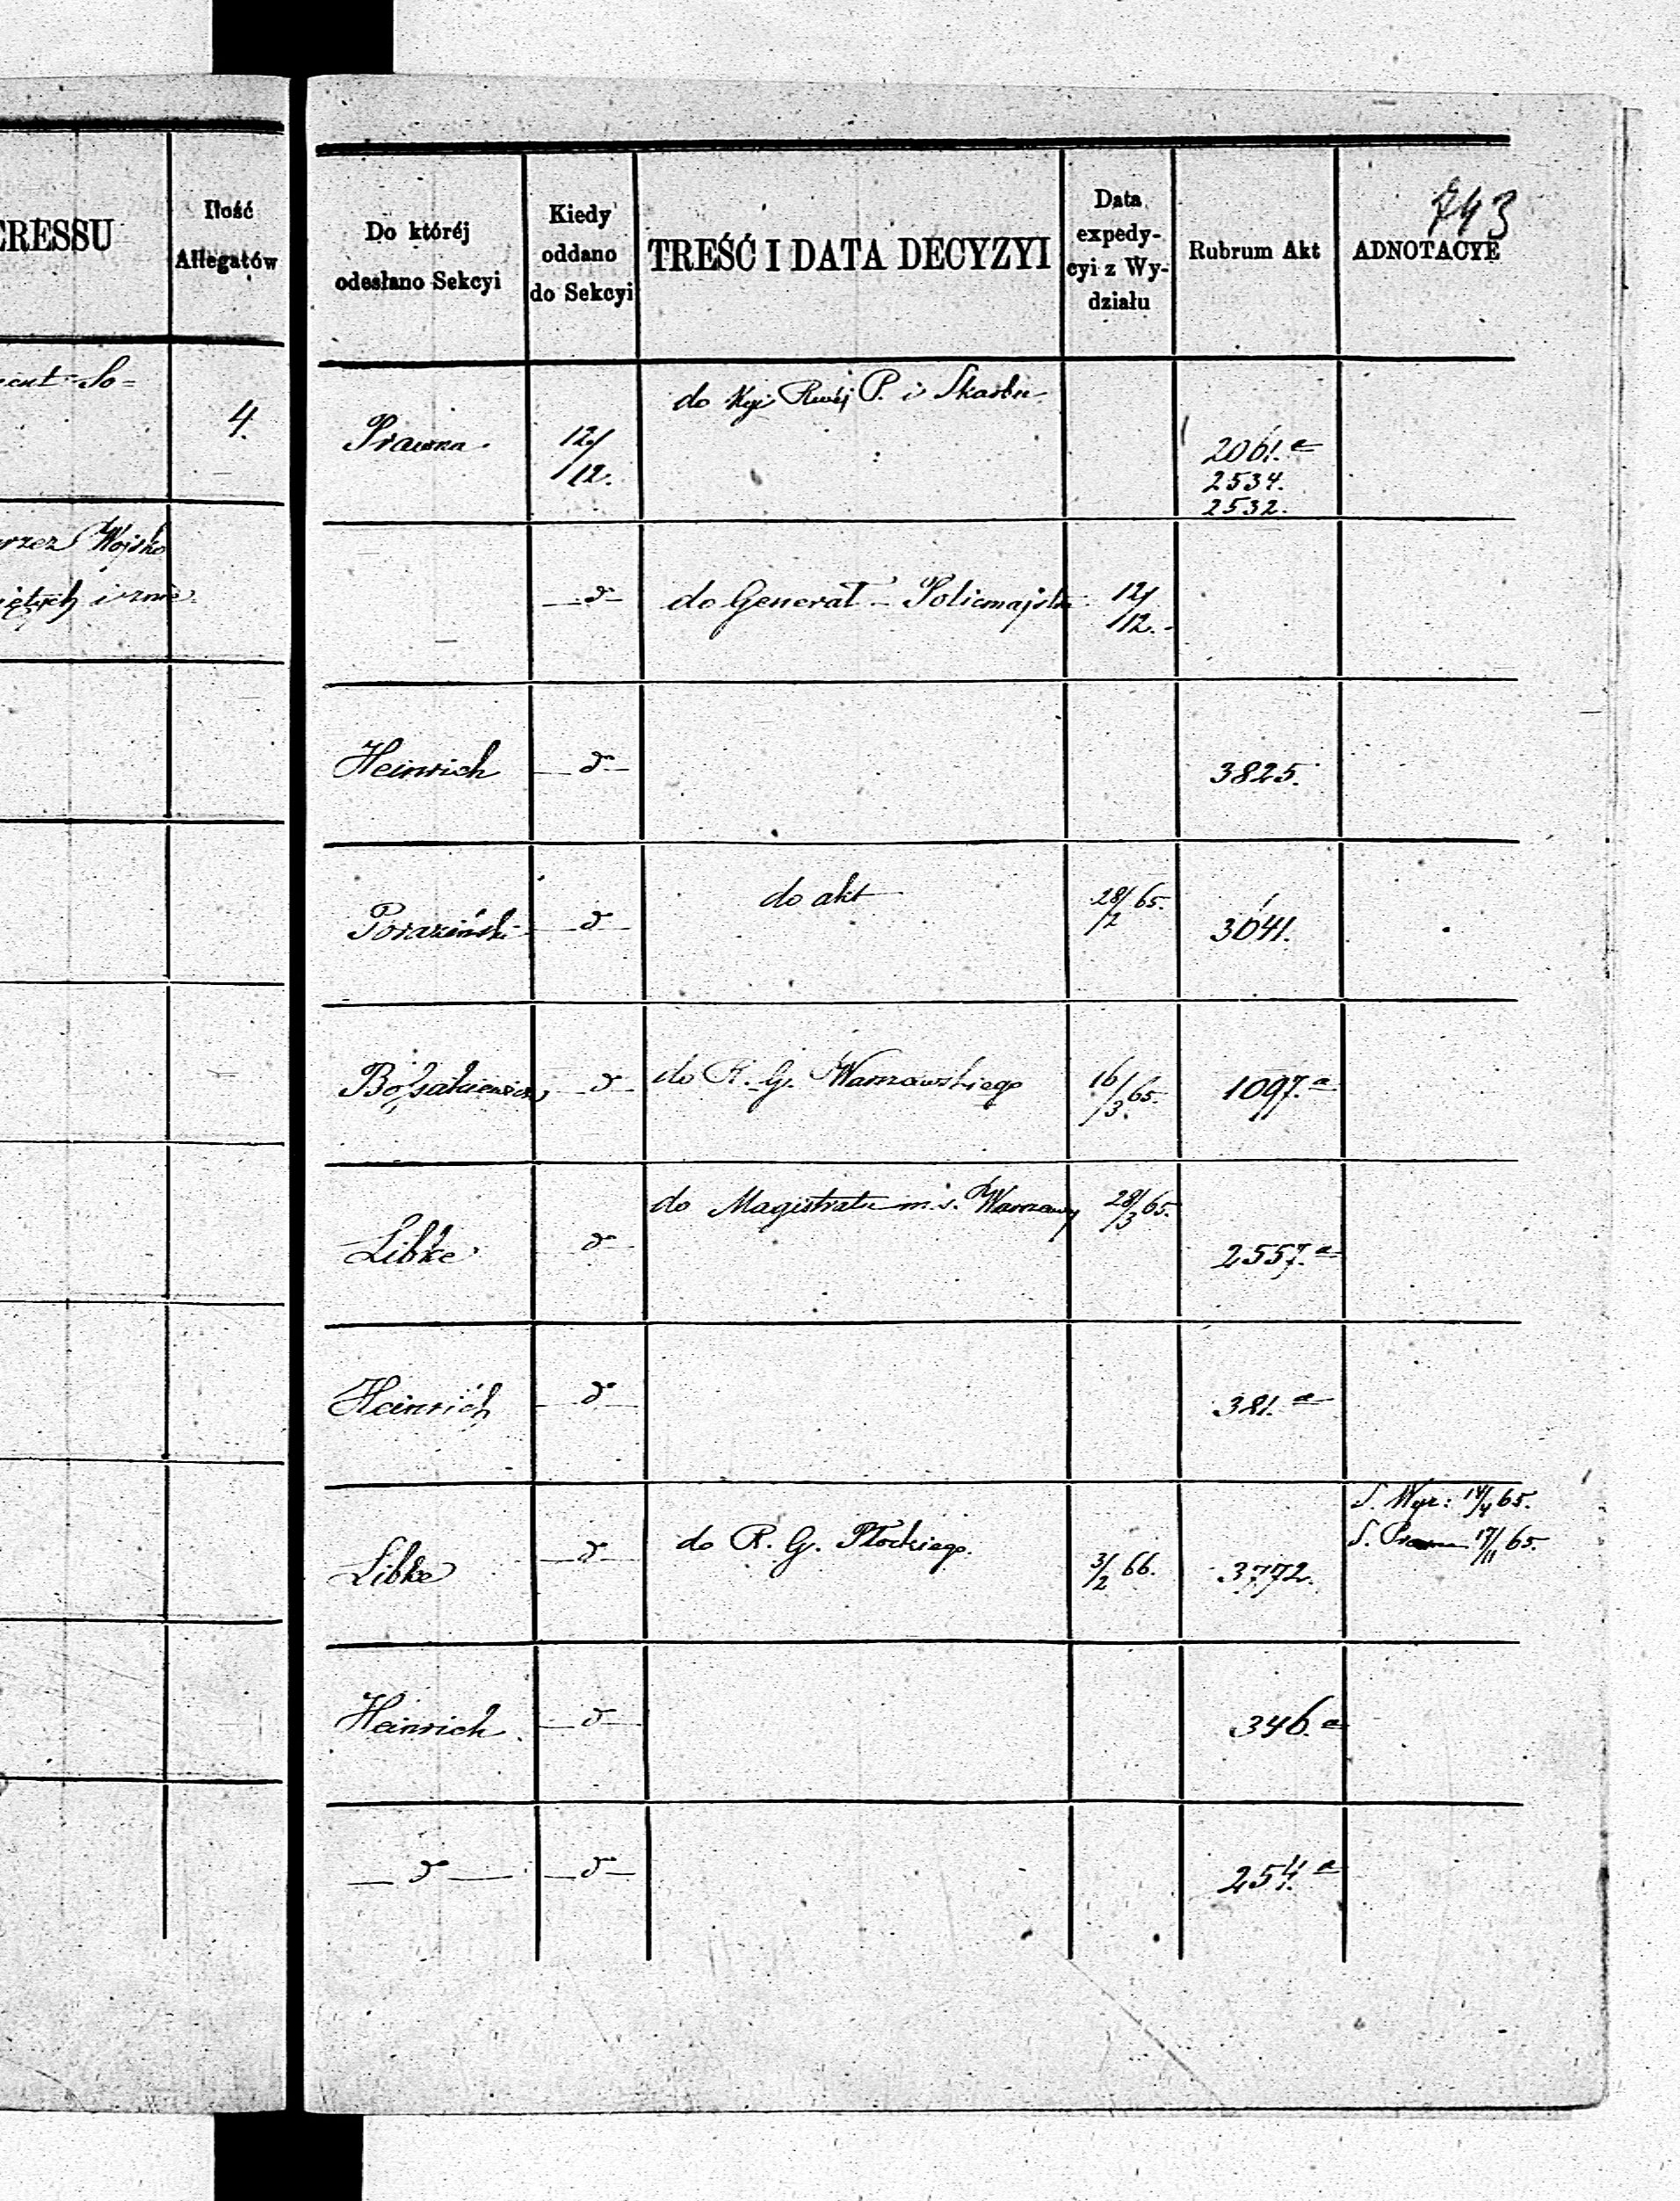 743
ERESSU
Ilość
Allegatów
Do któréj
odesłano Sekcyi
Kiedy
oddano
do Sekcyi
TREŚĆ I DATA DECYZYI
Data
expedy-
cyi z Wy-
działu
Rubrum Akt
ADNOTACYE
4.
Prawna
12/
/12.
do Kyi Rwéj P. i Skarbu
2061.a
2534.
2532.
przez Wojsko
do Generał - Policmajstra
12/
/12.
Heinrich
3825.
Poraziński
do akt
28/2 65.
3041.
do R. G. Warszawskiego
16/3 65.
1097.a
Libke
do Magistratu m. s. Warszawy
28/3 65.
2557.a
Heinrich
381.a
Libke
do R. G. Płockiego.
3/2 66.
3772.
S. Wyz: 14/4 65.
S. 17/11 65.
Heinrich
346.a
254.a